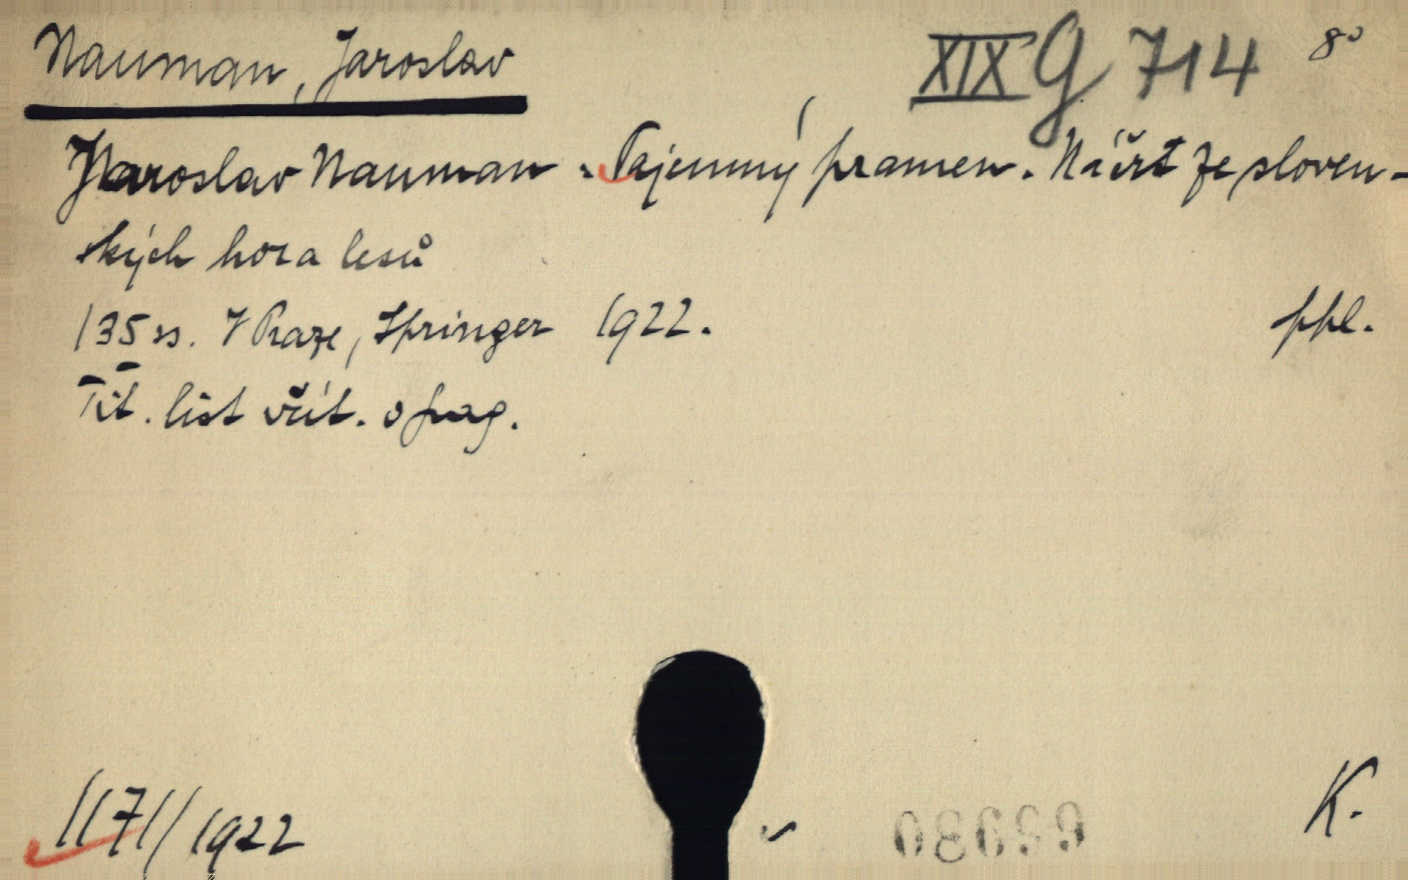 Nauman, Jaroslav
XIX G 714 8°
Jaroslav Nauman. Tajemný pramen. Náčrt ze sloven-
ských hor a lesů
135 ss. V Praze, Springer 1922. ppl.
Tit. list včít. o pag.
1171/1922
K.